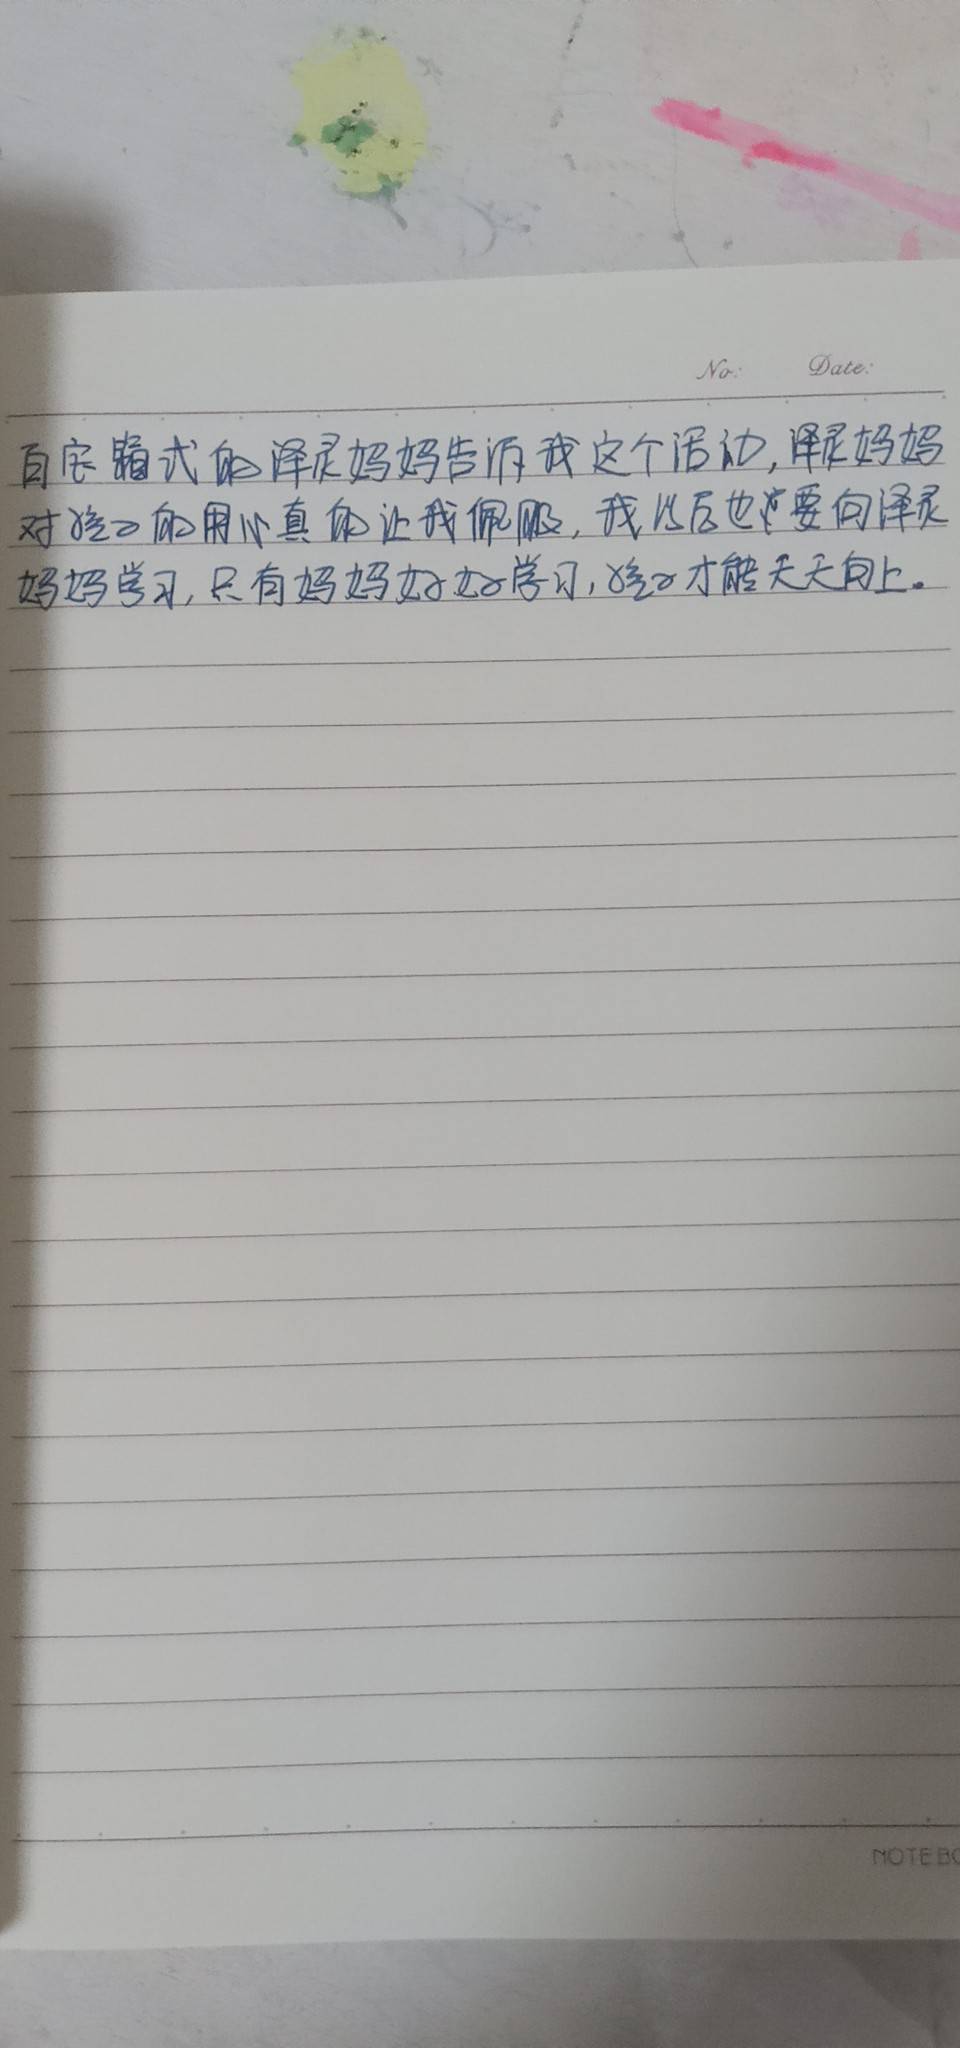 No: Date:
百宝箱式的泽灵妈妈告诉我这个活动,泽灵妈妈
对孩子的用心真的让我佩服,我以后也要向泽灵
妈妈学习,只有妈妈好好学习,孩子才能天天向上。